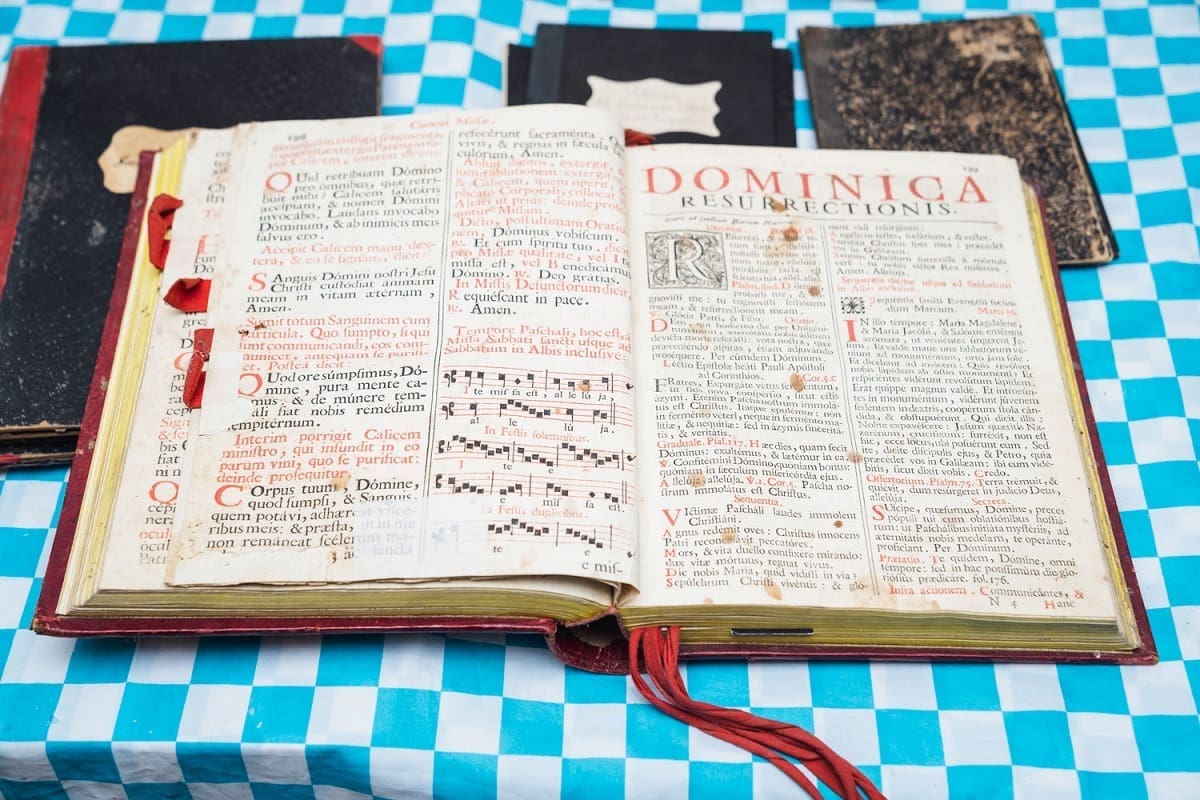 198
Canon Missæ.
QUid retribuam Dómino
pro ómnibus, quæ retri-
buit mihi? Calicem salutáris
accípiam, & nomen Dómini
invocábo. Laudans invocábo
Dóminum, & ab inimícis meis
salvus ero.
Accipit Calicem manu dex-
tera, & eo se signans, dicit:
SAnguis Dómini nostri Jesu
Christi custódiat ánimam
meam in vitam ætérnam,
Amen.
Sumit totum Sanguinem cum
particula. Quo sumpto, si qui
sunt communicandi, eos com-
municet, antequam se purifi-
Postea dicit:
QUod ore súmpsimus, Dó-
mine, pura mente ca-
& de múnere tem-
áli fiat nobis remédium
sempitérnum.
Interim porrigit Calicem
ministro, qui infundit in eo
parum vini, quo se purificat:
deinde prosequitur:
COrpus tuum, Dómine,
quod sumpsi, & Sanguis,
quem potávi, adhære
ribus meis: & præsta,
non remáneat scéler
refecérunt sacraménta
vivis, & regnas in sæcula
culórum, Amen.
Abluit digitos, extergit,
sumit ablutionem: extergit
& Calicem, quem operit,
cato Corporali, collocat
Altari ut prius: deinde pro-
quitur Missam.
Dicto, post ultimam Oratio
nem, Dóminus vobíscum.
℟. Et cum spíritu tuo,
pro Missæ qualitate, vel I
missa est, vel Benedicámus
Dómino. ℟. Deo grátias.
In Missis Defunctorum dicit,
Requiéscant in pace.
℟. Amen.
Tempore Paschali, hoc est, à
Missa Sabbati sancti usque ad
Sabbatum in Albis inclusivè:
I te missa est, al le lú ja,
al le lú ja.
In Festis solemnibus.
I te
e mis sa est.
In Festis duplicibus.
te e
e mis-
199
DOMINICA
RESURRECTIONIS.
Statio ad sanctam Mariam
REsurréxi, &
tecum sum, allelúja:
posuísti super me
manum
mirábilis facta est
sciéntia tua, allelúja,
allelúja. Psalm. 138. Dómine
probásti me, &
cognovísti me: tu cognovísti sessiónem
meam, & resurrectiónem meam.
℣. Glória Patri, & Fílio. Oratio.
DEus, qui hodiérna die per Unigéni-
tum tuum, æternitátis nobis áditum
devícta morte reserásti: vota nostra, quæ
præveniéndo aspíras, étiam adjuvándo
proséquere. Per eúmdem Dóminum.
Léctio Epístolæ beáti Pauli Apóstoli
ad Corínthios. 1. Cor. 5. c
FRatres, Expurgáte vetus ferméntum,
ut sitis nova conspérsio, sicut estis
ázymi. Etenim Pascha nostrum immolá-
tus est Christus. Itaque epulémur: non
in ferménto véteri, neque in ferménto ma-
lítiæ, & nequítiæ: sed in ázymis sinceritá-
tis, & veritátis.
Graduale. Psal. 117. Hæc dies, quam fecit
Dóminus: exultémus, & lætémur in ea.
℣. Confitémini Dómino, quóniam bonus:
quóniam in sæculum misericórdia ejus.
Allelúja, allelúja. ℣. 1. Cor. 5. Pascha no-
strum immolátus est Christus.
Sequentia.
VIctimæ Pascháli laudes ímmolent
Christiáni.
Agnus redémit oves: Christus ínnocens
Patri reconciliávit peccatóres.
Mors, & vita duéllo conflixére mirándo:
dux vitæ mórtuus, regnat vivus.
Dic nobis María, quid vidísti in via?
Sepúlchrum Christi vivéntis: & gló-
riam vidi resurgéntis:
Angélicos testes, sudárium, & vestes.
Surréxit Christus spes mea: præcédet
vos in Galilǽam.
Scimus Christum surrexísse à mórtuis
verè: tu nobis victor Rex miserére.
Amen. Allelúja.
Sequentia dicitur usque ad Sabbatum
in Albis inclusivè.
Sequéntia sancti Evangélii secún-
dum Marcum. Marci 16.
IN illo témpore: María Magdaléne,
& María Jacóbi, & Salóme emérunt
arómata, ut veniéntes úngerent Je-
sum. Et valde mane una sabbatórum vé-
niunt ad monuméntum, orto jam sole.
Et dicébant ad ínvicem: Quis revólvet
nobis lápidem ab óstio monuménti? Et
respiciéntes vidérunt revolútum lápidem.
Erat quippe magnus valde. Et introeún-
tes in monuméntum, vidérunt júvenem
sedéntem in dextris, coopértum stola cán-
dida, & obstupuérunt. Qui dicit illis:
Nolíte expavéscere: Jesum quǽritis Na-
zarénum, crucifíxum: surréxit, non est
hic, ecce locus, ubi posuérunt eum. Sed
ite, dícite discípulis ejus, & Petro, quia
præcédet vos in Galilǽam: ibi eum vidé-
bitis, sicut dixit vobis. Credo.
Offertorium. Psalm. 75. Terra trémuit, &
quiévit, dum resúrgeret in judício Deus,
allelúja. Secreta.
SUscipe, quǽsumus, Dómine, preces
pópuli tui cum oblatiónibus hostiá-
rum: ut Paschálibus initiáta mystériis, ad
æternitátis nobis medélam, te operánte,
profíciant. Per Dóminum.
Præfatio. Te quidem, Dómine, omni
témpore: sed in hac potíssimum die glo-
riósius prædicáre. fol. 176.
Infra actionem. Communicántes, &
N 4 Hanc